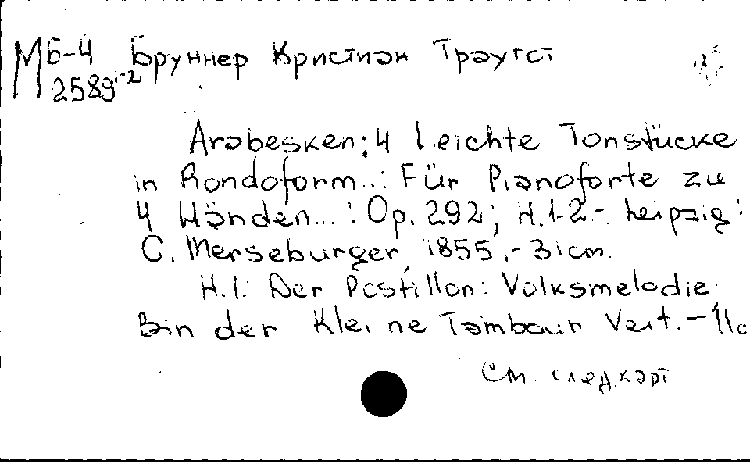 М Б-4 Бруннер Кристиан Траугот
2589-2
Arabesken: 4 Leichte Tonstücke
in Rondoform..: Für Pianoforte zu
4 Händen...: Op. 292; H.1-2.- Leipzig:
C. Merseburger, 1855.- 31cm.
H.1: Der Postillon: Volksmelodie;
Bin der Kleine Tambour Veit. - 11c
См. след.карт